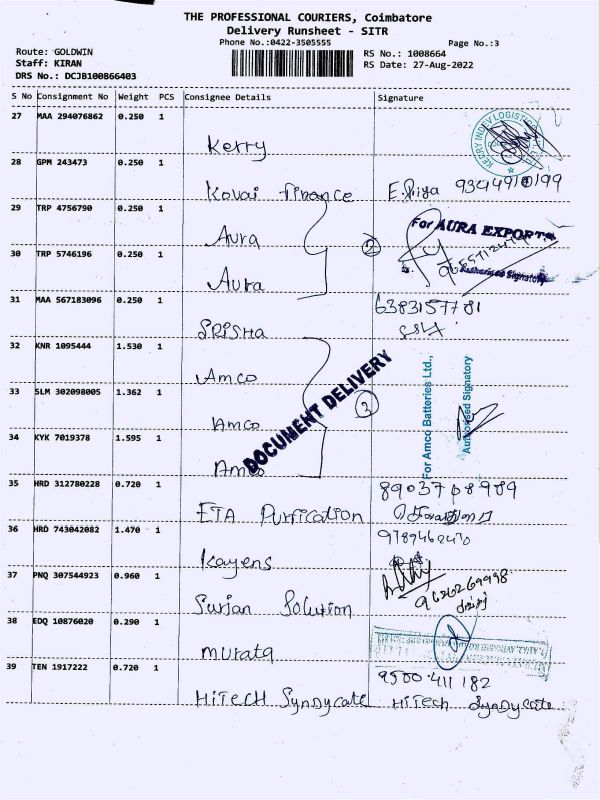 THE PROFESSIONAL COURIERS, Coimbatore
Delivery Runsheet - SITR
Phone No.:0422-3505555
Page No.:3
Route: GOLDWIN
RS No.: 1008664
Staff: KIRAN
RS Date: 27-Aug-2022
DRS No.: DCJB100866403
S No Consignment No Weight PCS Consignee Details Signature
27 MAA 294076862 0.250 1
Kerry
KERRY INDEV LOGISTICS
28 GPM 243473 0.250 1
Kovai Finance E.Priya 9344910199
29 TRP 4756790 0.250 1
Aura
For AURA EXPORTS
2
30 TRP 5746196 0.250 1
Aura
Authorised Signatory
31 MAA 567183096 0.250 1 6383157781
SRISHA
32 KNR 1095444 1.530 1
Amco
33 SLM 302098005 1.362 1
Amco
3
DOCUMENT DELIVERY
For Amco Batteries Ltd.,
Authorised Signatory
34 KYK 7019378 1.595 1
Amco
35 HRD 312780228 0.720 1 8903708989
ETA Purfication
36 HRD 743042082 1.470 1 9789462470
Kayens
37 PNQ 307544923 0.960 1
9626269998
Surjan Solution
38 EDQ 10876020 0.290 1
Murata
39 TEN 1917222 0.720 1 9500 411 182
HiTech Syndycate HiTech Syndycate